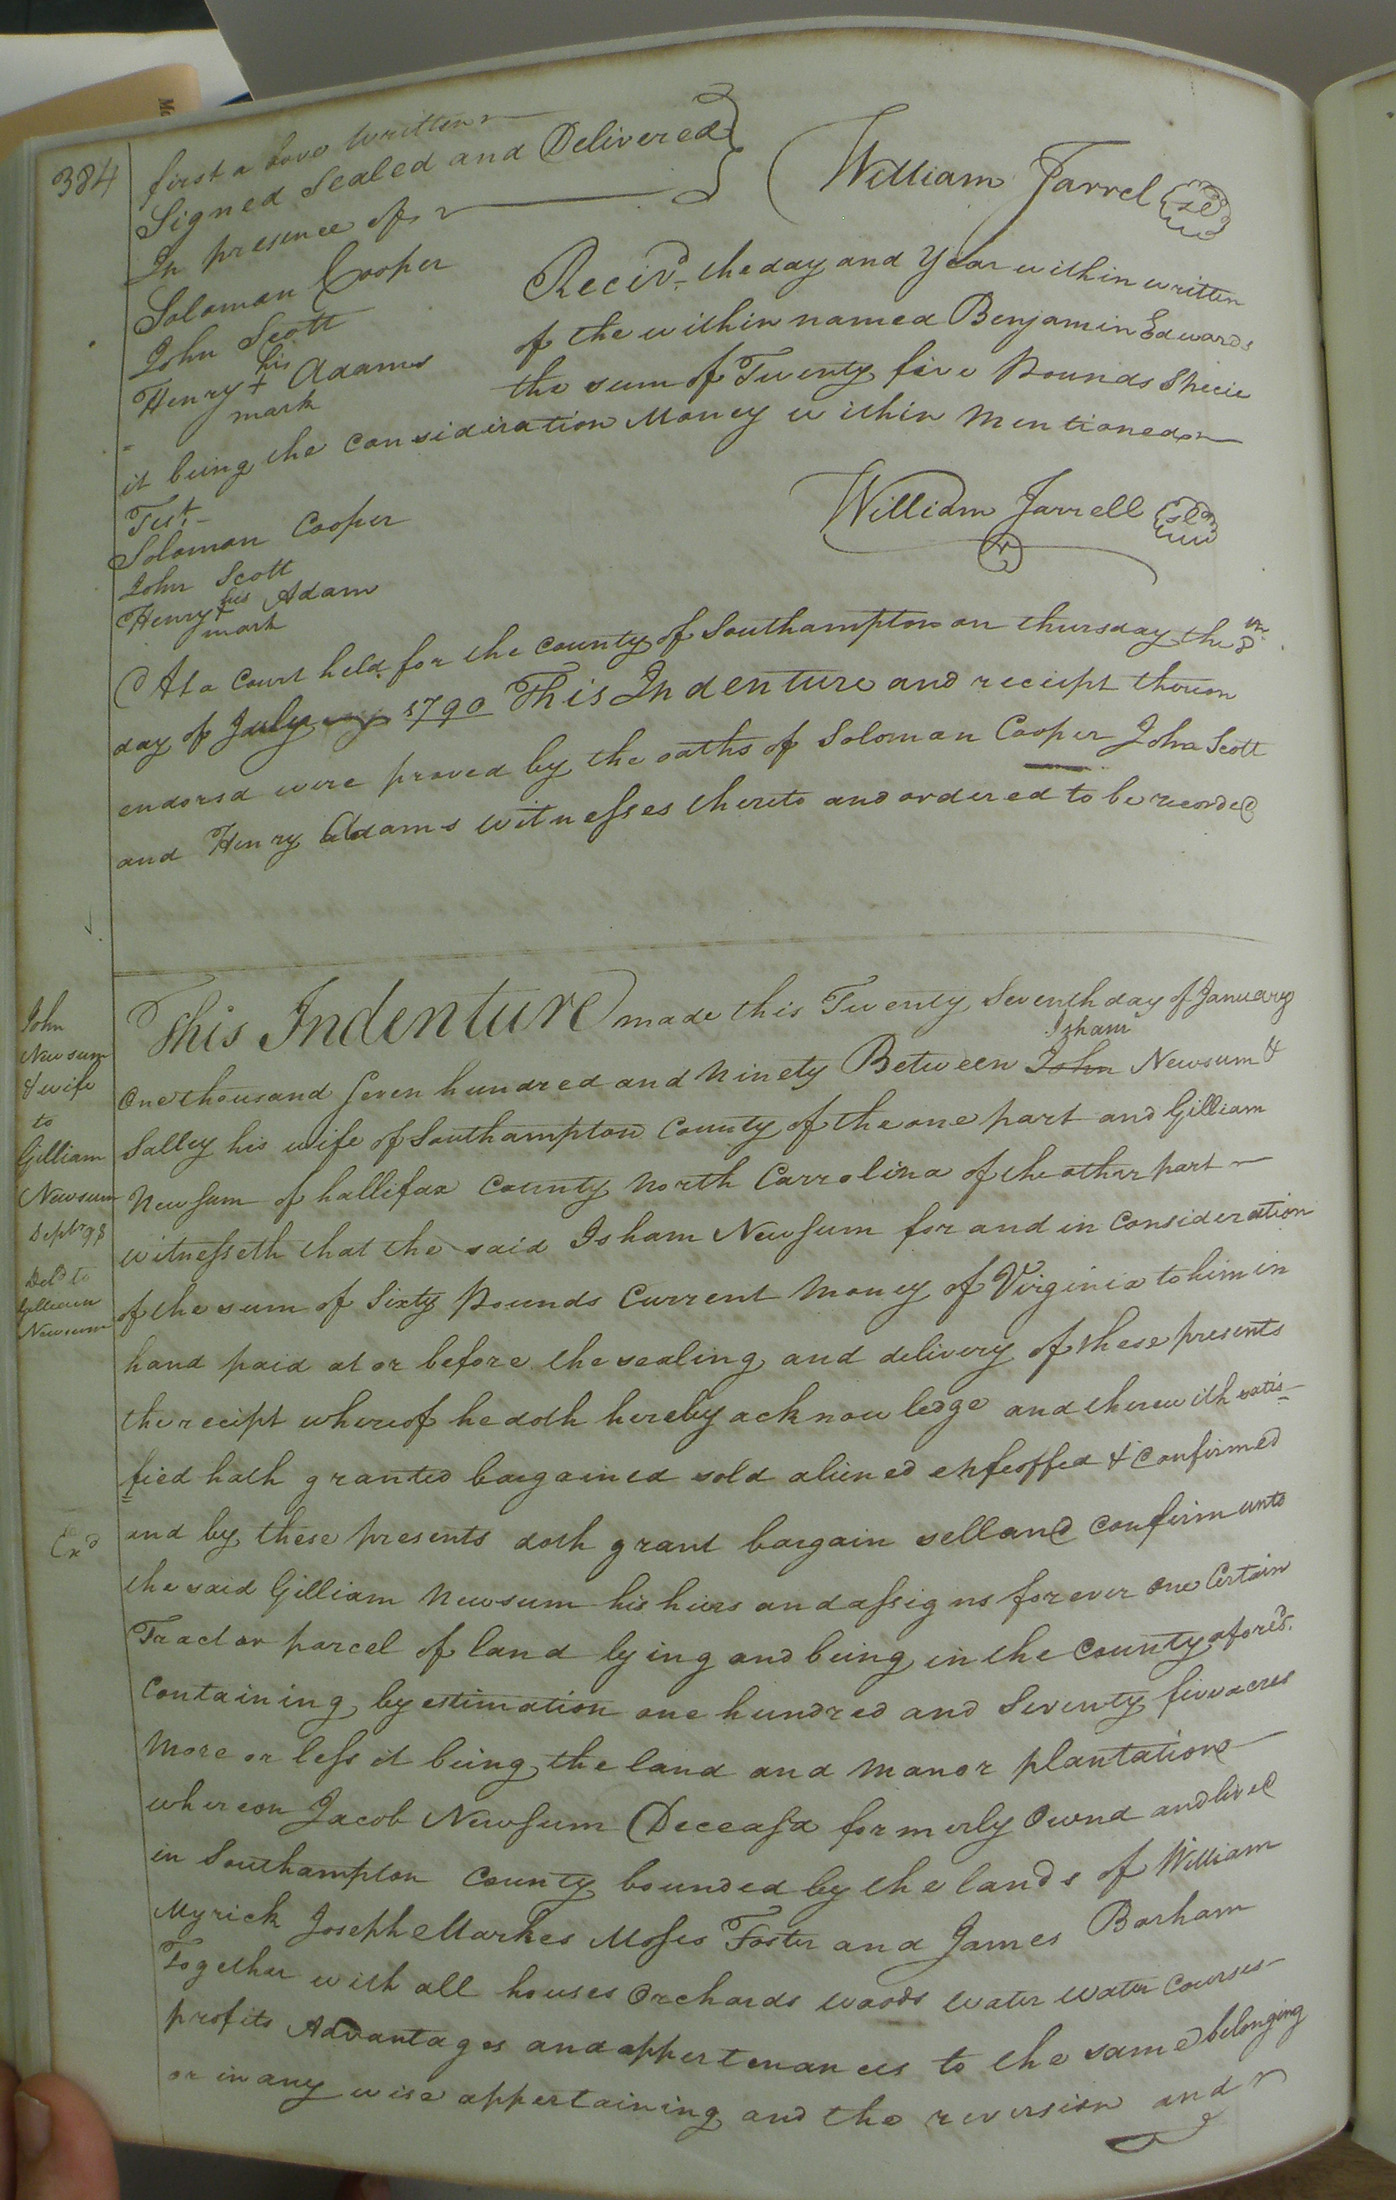 384
first above written
Signed Sealed and Delivered
In presence of
William Jarrel
Seal
Soloman Cooper
John Scott
his
Henry + Adams
mark
Receivd. the day and Year within written
of the within named Benjamin Edwards
the sum of Twenty five Pounds Specie
it being the consideration Money within Mentioned
Test.
William Jarrell
Seal
Soloman Cooper
John Scott
his
Henry + Adam
mark
At a Court held for the County of Southampton on thursday the 8th
day of July 1790 This Indenture and receipt thereon
endorsd were proved by the oaths of Soloman Cooper John Scott
and Henry Adams witnesses thereto and ordered to be recorded
John
Newsum
& wife
to
Gilliam
Newsum
Septr 98
Deld to
Gilliam
Newsum
Exd
This Indenture made this Twenty Seventh day of January
Isham
One thousand Seven hundred and Ninety Between John Newsum &
Salley his wife of Southampton County of the one part and Gilliam
Newsum of hallifax County North Carrolina of the other part
witnesseth that the said Isham Newsum for and in Consideration
of the sum of Sixty Pounds Current Money of Virginia to him in
hand paid at or before the sealing and delivery of these presents
the recipt whereof he doth hereby acknowledge and therewith satis-
fied hath granted bargained sold aliened enfeoffed & Confirmed
and by these presents doth grant bargain sell and Confirm unto
the said Gilliam Newsum his heirs and assigns forever One Certain
Tract or parcel of land lying and being in the County aforesd.
Containing by estimation one hundred and Seventy five acres
More or less it being the land and Manor plantation
whereon Jacob Newsum Deceasd formerly Ownd and lived
in Southampton County bounded by the lands of William
Myrick Joseph Markes Moses Foster and James Barham
Together with all houses Orchards woods water water Courses
profits Advantages and appertenances to the same belonging
or in any wise appertaining and the reversion and